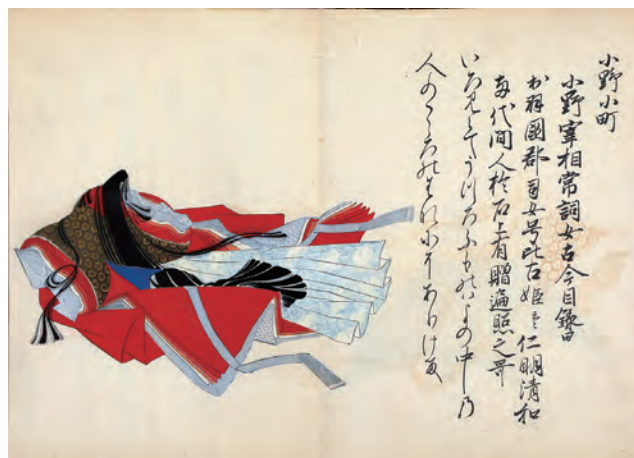 小野小町
小野宰相常詞女古今目錄曰
出羽國郡司女号比右姫云々仁明清和
両代間人於石上有贈遍照之哥
いろ見えてうつろふものはよの中乃
人のこゝろのはなにそありける